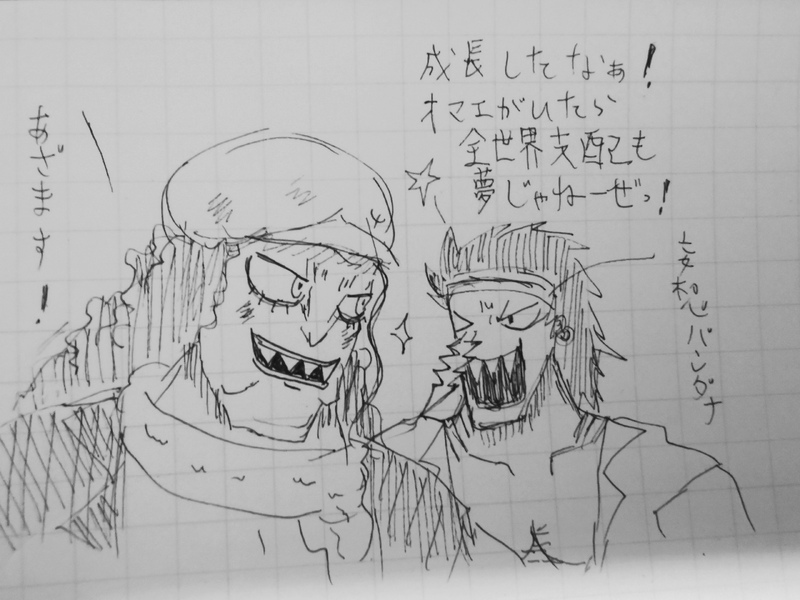 成長したなぁ！
オマエがいたら
全世界支配も
夢じゃねーぜっ！
あざます！
妄想バンダナ